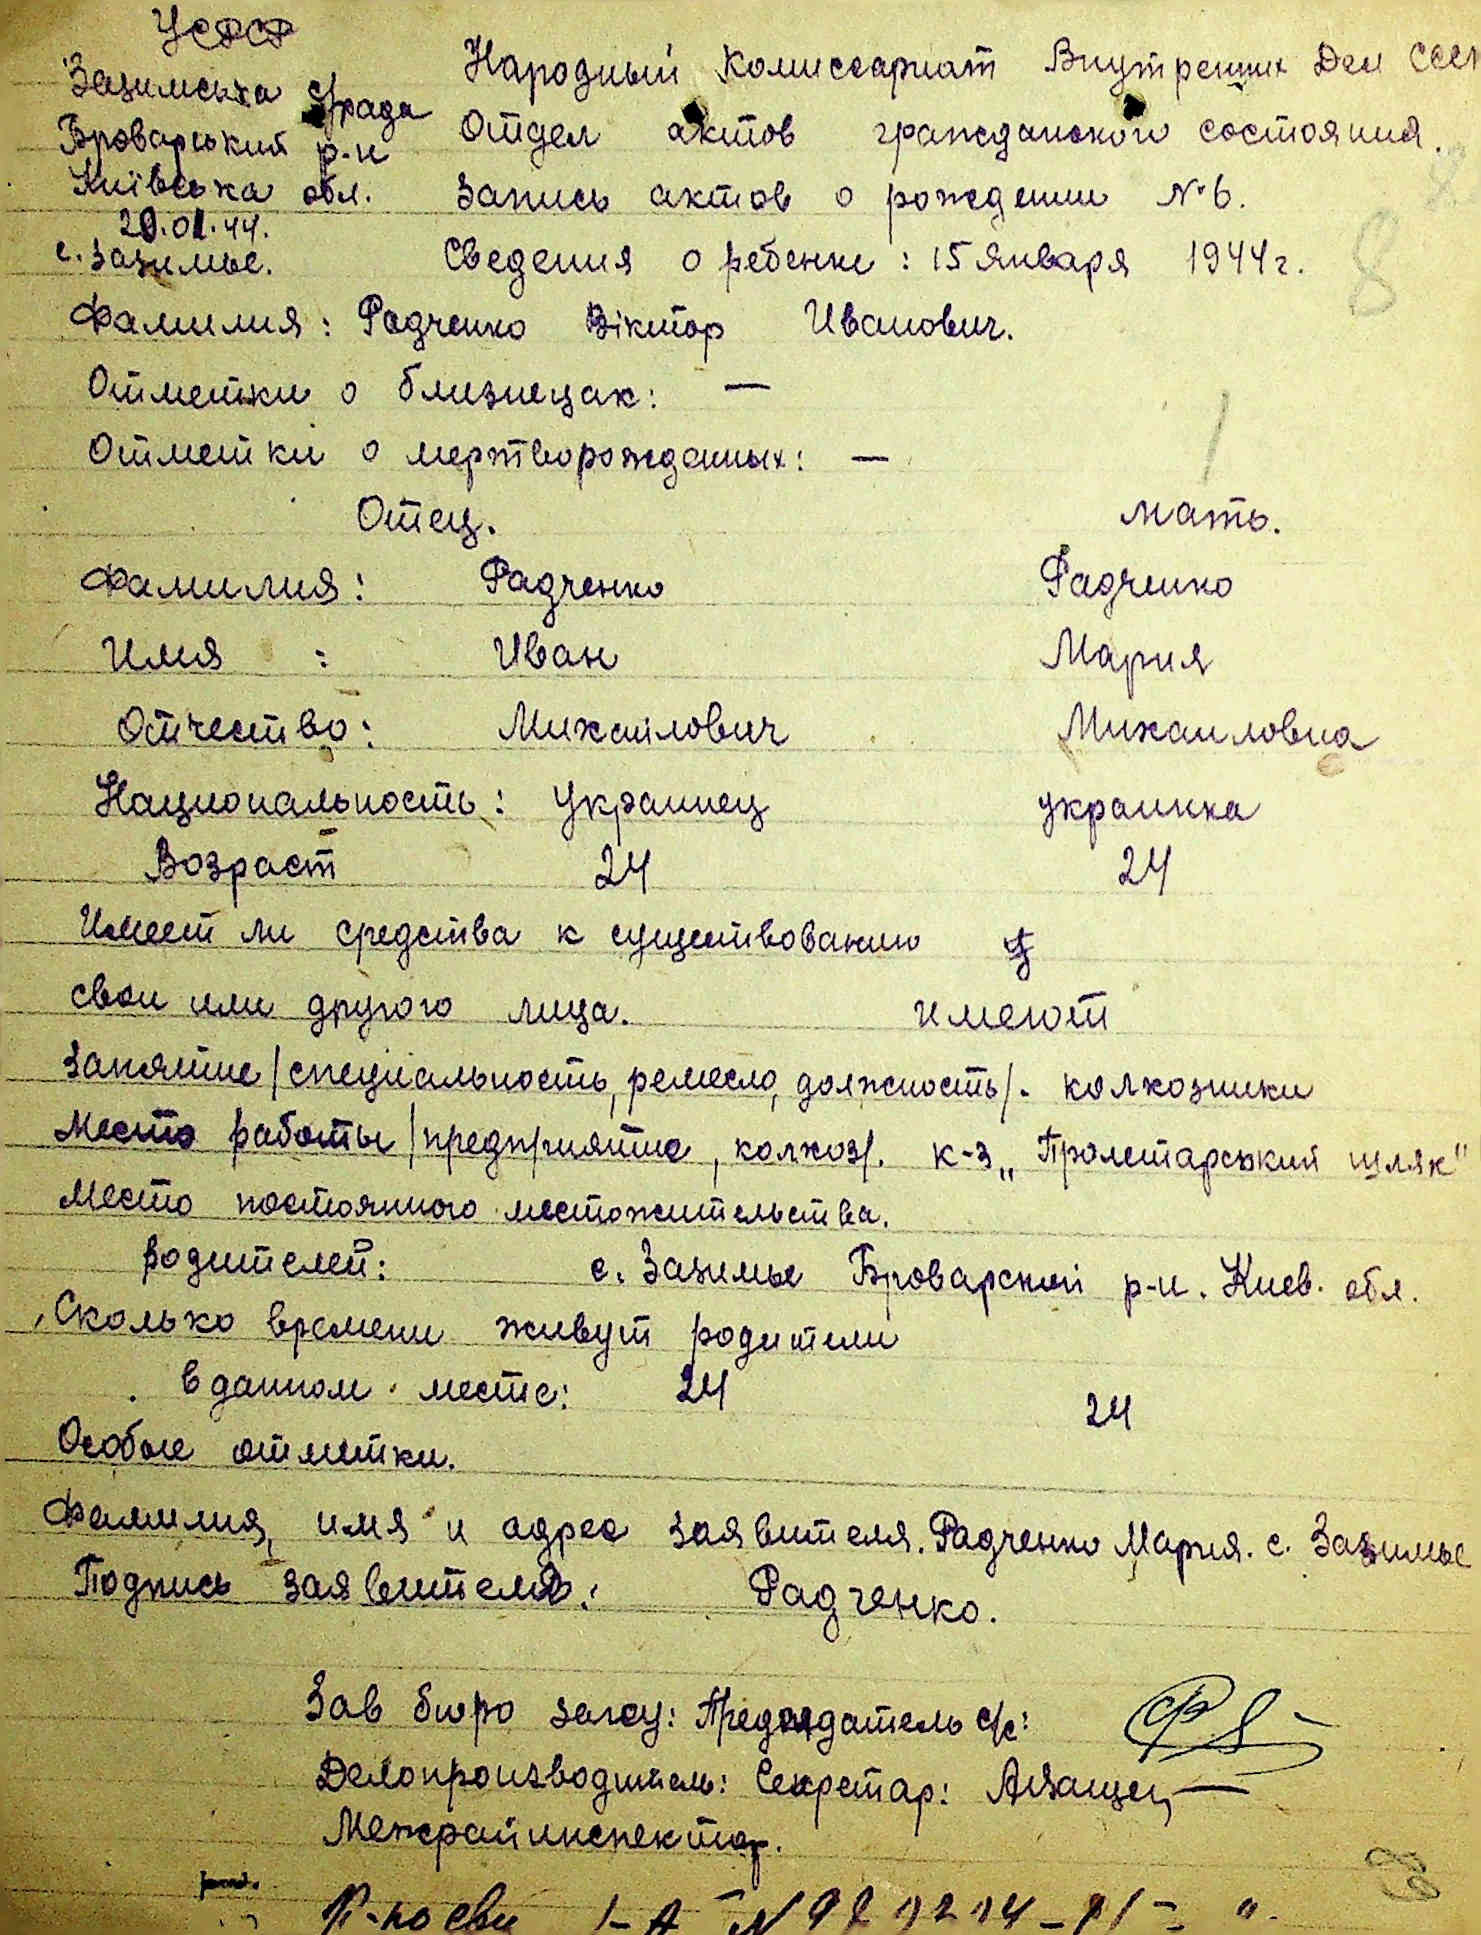 УСРСР
Зазимська с/рада
Броварський р-н
Київська обл.
20.01.44.
с. Зазимье.
Народный Комиссариат Внутренних Дел СССР
Отдел актов гражданского состояния.
Запись актов о рождении №6.
Сведения о ребенке: 15 Января 1944 г.
8
Фамилия: Радченко Віктор Иванович.
Отметки о близнецах: —
Отметки о мертворожденных: —
Отец. мать.
Фамилия: Радченко Радченко
Имя : Иван Мария
Отчество: Михайлович Михайловна
Национальность: Украинец украинка
Возраст 24 24
Имеет ли средства к существованию
свои или другого лица. имеют
Занятие /специальность, ремесло, должность/. колхозники
Место работы /предприятие, колхоз/. к-з „Пролетарський шлях"
Место постоянного местожительства.
родителей: с. Зазимье Броварский р-н. Киев. обл.
Сколько времени живут родители
в данном месте: 24 24
Особые отметки.
Фамилия, имя и адрес заявителя. Радченко Мария. с. Зазимье
Подпись заявителя: Радченко.
Зав бюро загсу: Председатель с/с:
Делопроизводитель: Секретар:
Межрайинспектор.